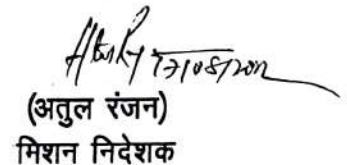 (अतुल रंजन)
मिशन निदेशक